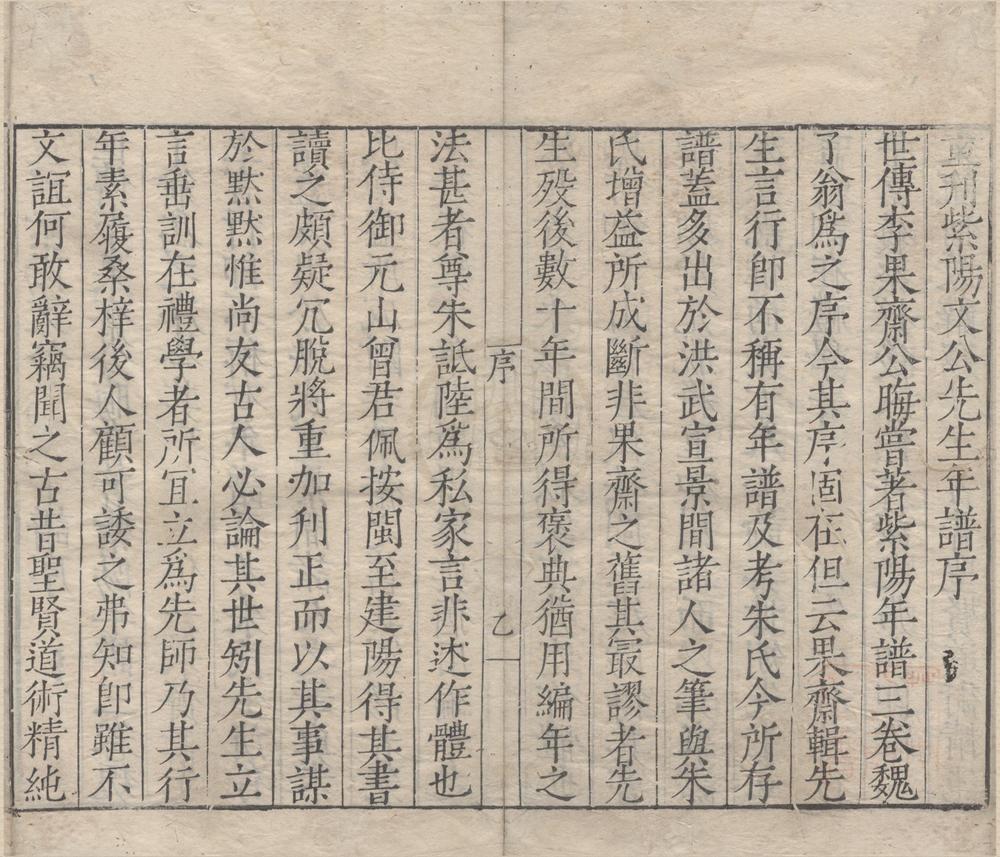 重刊紫陽文公先生年譜序
世傳李果齋公晦嘗著紫陽年譜三卷魏
了翁爲之序今其序固在但云果齋輯先
生言行卽不稱有年譜及考朱氏今所存
譜葢多出於洪武宣景間諸人之筆與朱
氏增益所成斷非果齋之舊其最謬者先
生歿後數十年間所得褒典猶用編年之
序
乙
法甚者尊朱詆陸爲私家言非述作體也
比侍御元山曾君佩按閩至建陽得其書
讀之頗疑冗脫將重加刋正而以其事謀
於默默惟尚友古人必論其世矧先生立
言垂訓在禮學者所宜立爲先師乃其行
年素履桑梓後人顧可諉之弗知卽雖不
文誼何敢辭竊聞之古昔聖賢道術精純